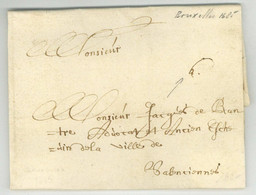 Bruxelles 1685
Monsieur
Monsieur Jacques de Bran
=tre Advocat et Ancien Esche
=vin de la ville de
Valenciennes